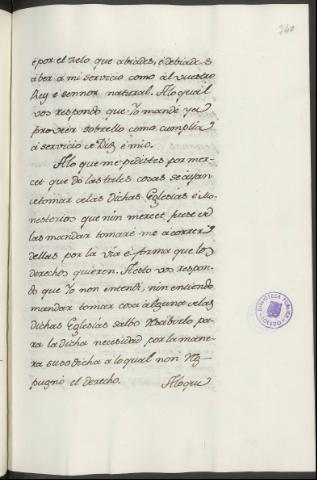 240
è por el zelo que abiades, è debiades
àber à mi servicio como al vuestro
Rey è sennor natural. A lo qual
vos respondo que Yo mandè ya
proveèr sobrello como cumplia
à servicio de Dios è mio.
A lo que me pedistes por mer-
cet que do las tales cosas se ayan
de tomar de las dichas Eglesias è Mo-
nesterios que nin mercet fuese de
las mandar tomar è me acorrer
dellas por la via è forma que los
derechos quieren. A esto vos respon-
do que Yo non entendì, nin entiendo
mandar tomar cosa alguna de las
dichas Eglesias salbo debisorlo pa-
ra la dicha necesidad por la mane-
ra susodicha à lo qual non re-
pugnò el derecho. A lo que
BIBLIOTECA PUBLICA
TOLEDO